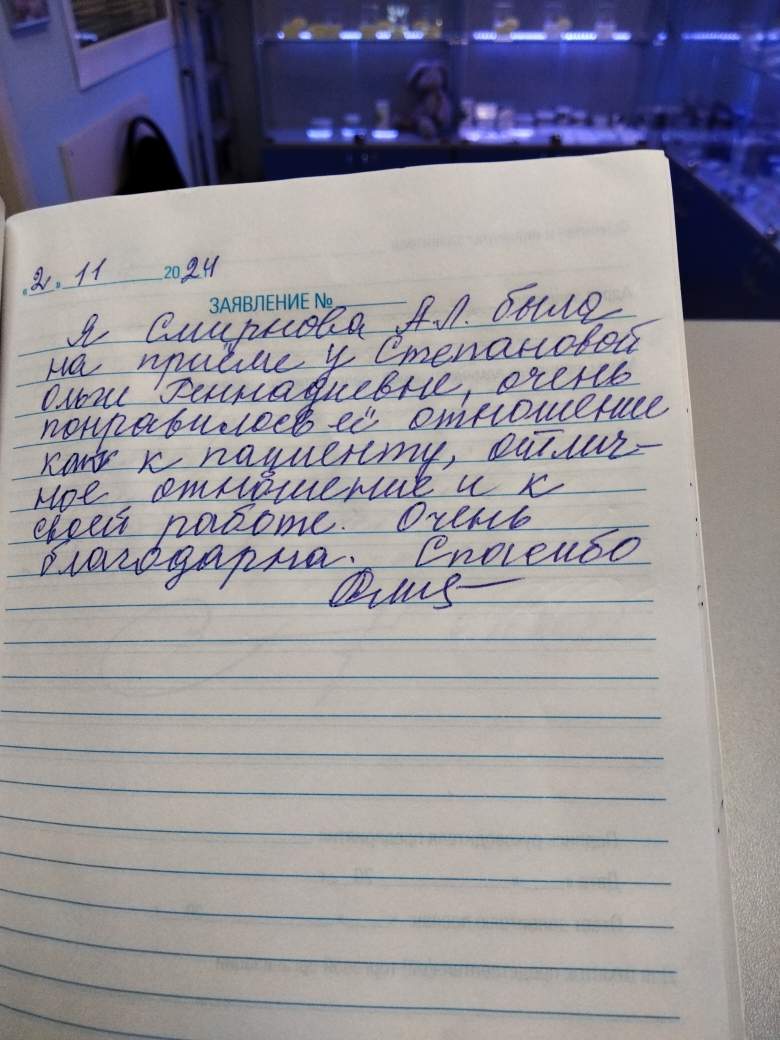 «2» 11 2024
ЗАЯВЛЕНИЕ №
Я Смирнова А.Л. была
на приёме у Степановой
Ольги Геннадиевне, очень
понравилось её отношение
как к пациенту, отлич-
ное отношение и к
своей работе. Очень
благодарна. Спасибо